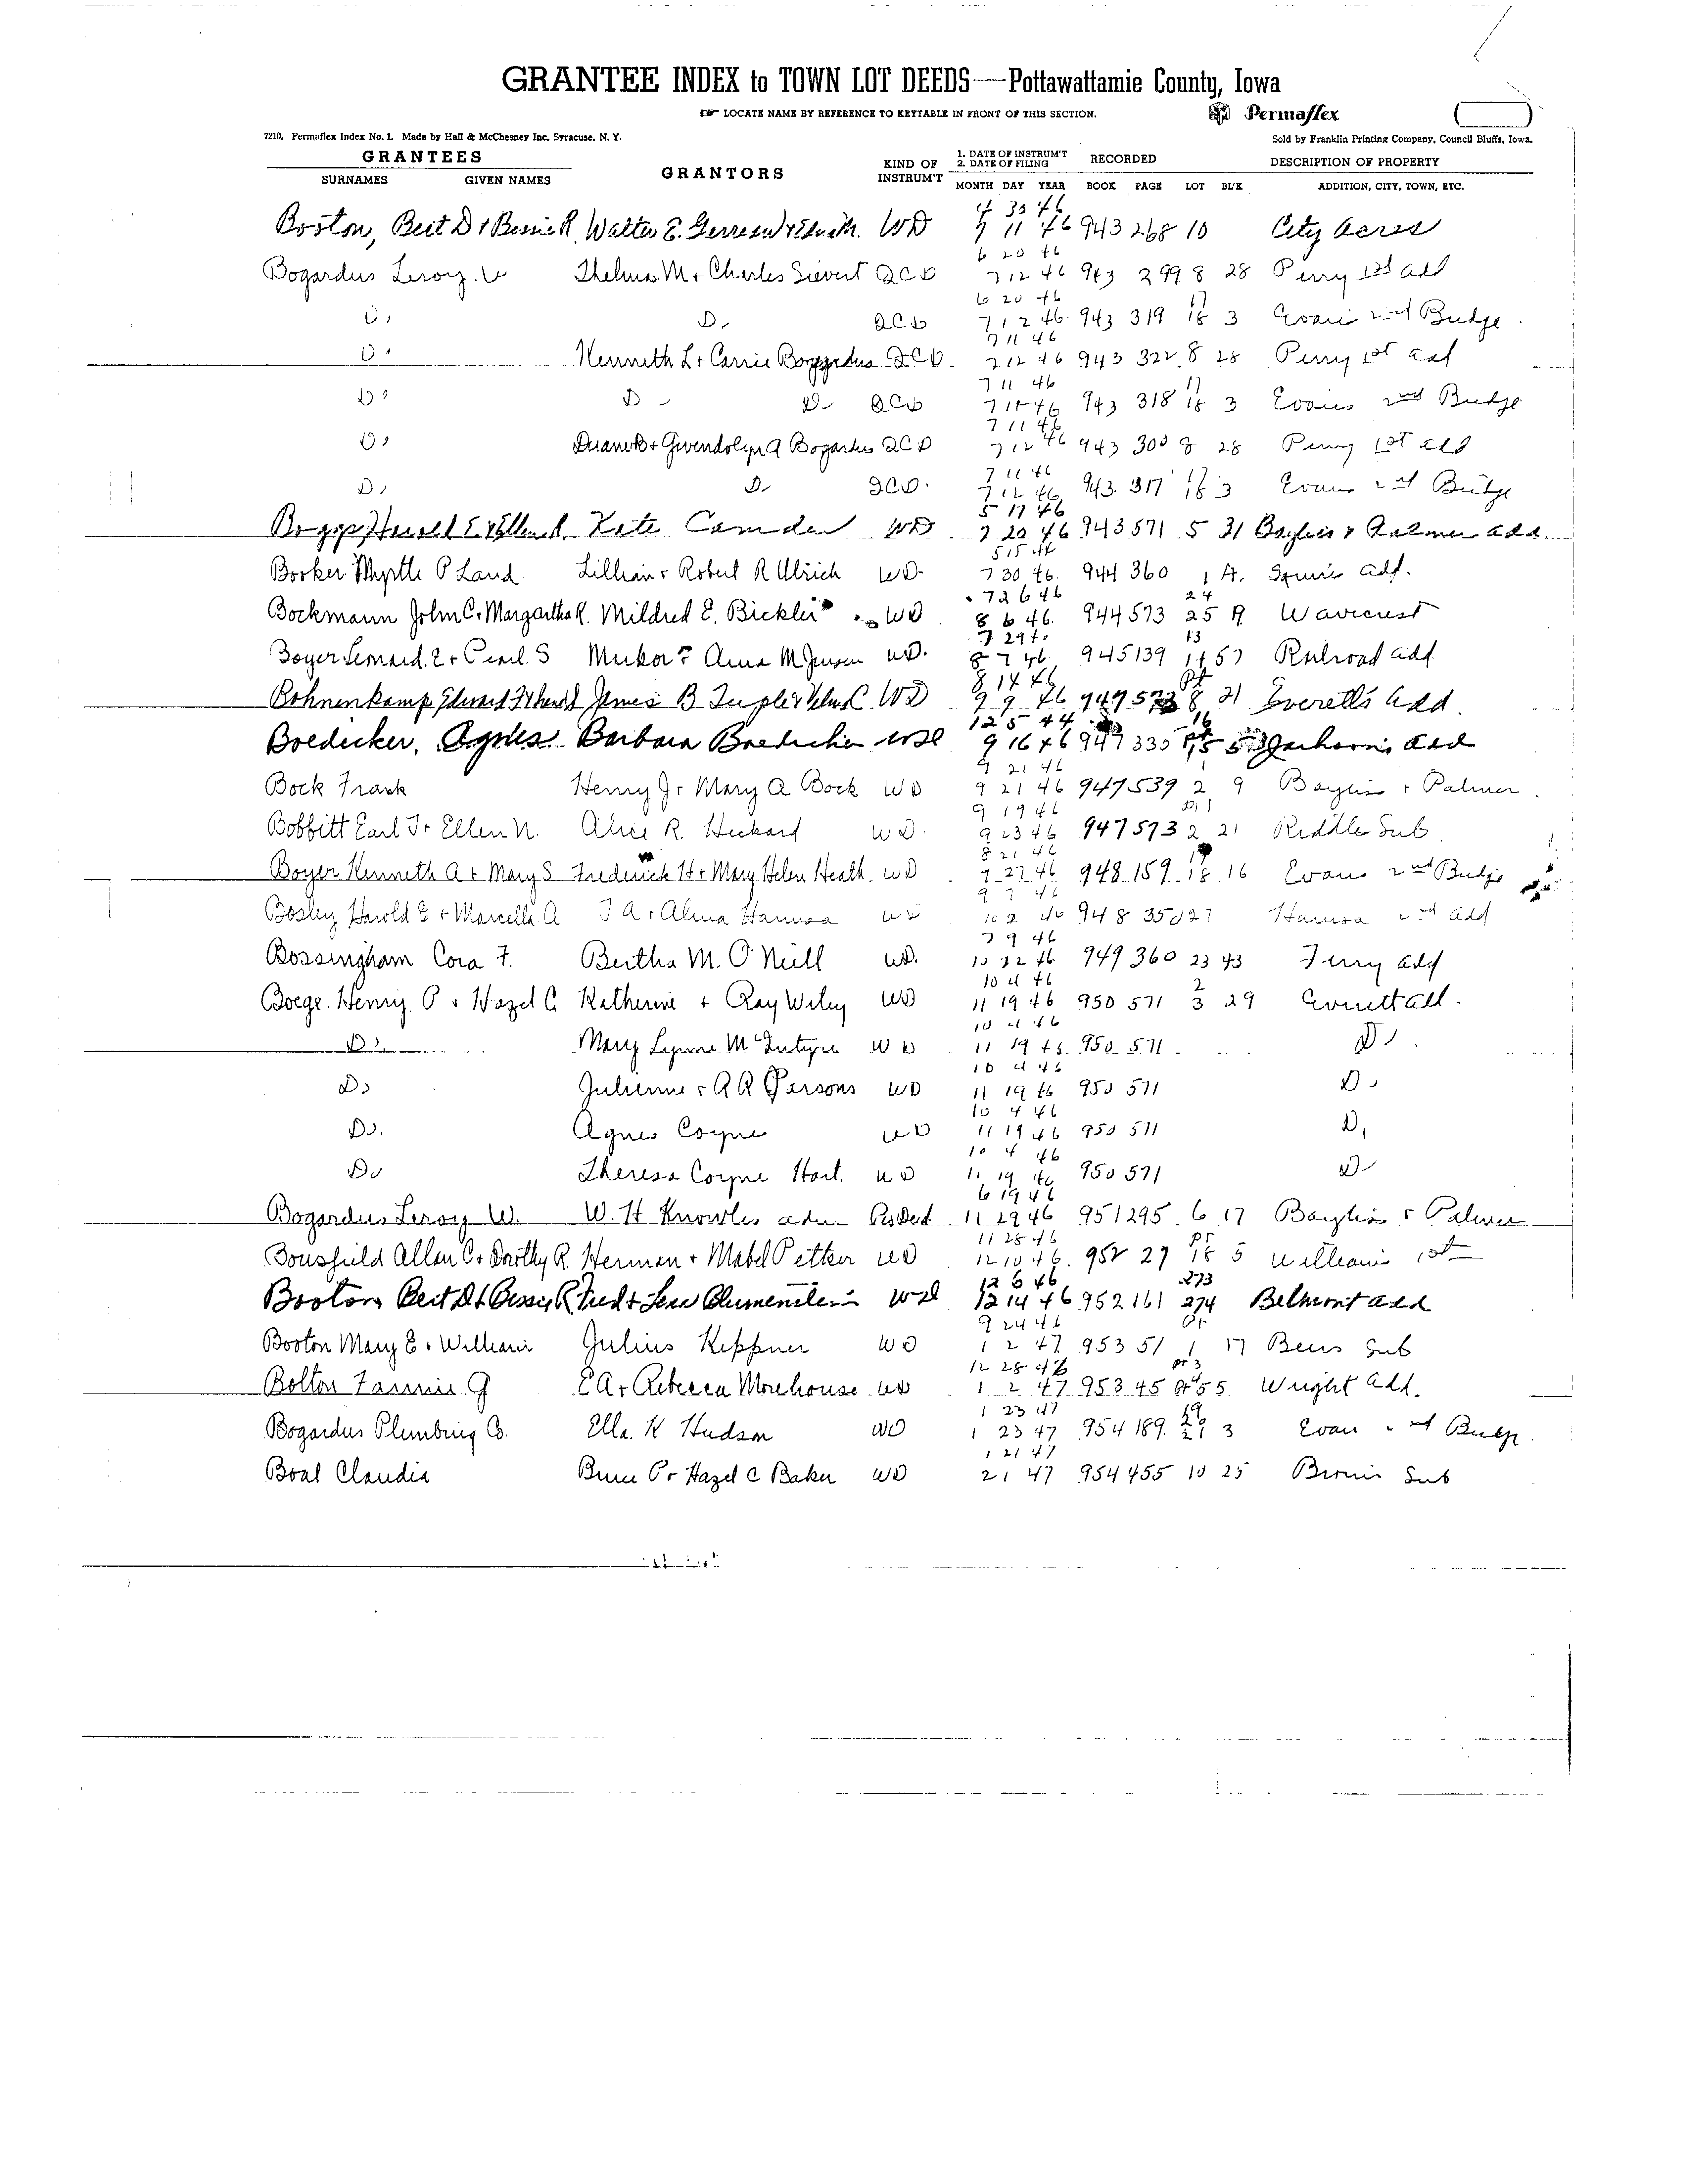 GRANTEE INDEX to TOWN LOT DEEDS—Pottawattamie County, Iowa
LOCATE NAME BY REFERENCE TO KEYTABLE IN FRONT OF THIS SECTION.
Permaflex
7210. Permaflex Index No. 1. Made by Hall & McChesney Inc, Syracuse, N. Y.
Sold by Franklin Printing Company, Council Bluffs, Iowa.
GRANTEES GRANTORS KIND OF INSTRUM'T 1. DATE OF INSTRUM'T 2. DATE OF FILING RECORDED DESCRIPTION OF PROPERTY
SURNAMES GIVEN NAMES MONTH DAY YEAR BOOK PAGE LOT BL'K ADDITION, CITY, TOWN, ETC.
4 30 46
Boston, Bert D & Bessie R. Walter E. WD 7 11 46 943 268 10 City Acres
6 20 46
Bogardus Leroy. W Thelma M + Charles Sievert QCD 7 12 46 943 299 8 28 Perry 1st add
6 20 46 17
D. D. QCD 7 12 46 943 319 18 3 Evans 2nd Bridge
7 11 46
D. Kenneth L + Carrie Bogardus QCD. 7 12 46 943 322 8 28 Perry 1st add
7 11 46 17
D. D D QCD 7 12 46 943 318 18 3 Evans 2nd Bridge
7 11 46
D. Duane + Gwendolyn A Bogardus QCD 7 12 46 943 300 8 28 Perry 1st add
7 11 46 17
D. D. QCD. 7 12 46 943 317 18 3 Evans 2nd Bridge
5 17 46
Boggs Harold E. Kate Camden WD 7 20 46 943 571 5 31 Bayliss & Palmer add.
5 15 46
Booker Myrtle P Land Lillian + Robert R Ulrich WD 7 30 46 944 360 1 A. Squires add.
7 26 46 24
Bockmann John C. + Margartha K. Mildred E. Bickler WD 8 6 46 944 573 25 Wavecrest
7 29 13
Boyer Lenard. E + Pearl S Anna M Jensen WD. 8 7 46 945 139 14 57 Railroad add
8 14 46 Pt
Bohnenkamp Edward F James B WD 9 9 46 8 21 Everett's add.
12 5 44 16
Boedecker, Agnes Barbara Boedecker WD 9 16 46 947 335 Jackson's add
9 21 46 1
Bock Frank Henry J + Mary A Bock WD 9 21 46 947 539 2 9 Bayliss + Palmer.
9 19 46 Pt 1
Bobbitt Earl J + Ellen N. Alice R. Heckard WD. 9 23 46 947 573 2 21 Riddle Sub
8 21 46
Boyer Kenneth A + Mary S Frederick H + Mary Helen Heath WD 9 27 46 948 159 18 16 Evans 2nd Bridge
9 7 46
Bosley Harold E + Marcella A J A + Alma WD 10 2 46 948 350 27 2nd add
7 9 46
Bossingham Cora F. Bertha M. O'Neill WD. 10 22 46 949 360 23 43 Ferry add
10 4 46 2
Boege. Henry. P + Hazel C Katherine + Ray Wiley WD 11 19 46 950 571 3 29 Everett add.
10 4 46
D. Mary Lynne McIntyre WD 11 19 46 950 571 D.
10 4 46
D. Julienne + R R Persons WD 11 19 46 950 571 D.
10 4 46
D. Agnes Coyne WD 11 19 46 950 571 D.
10 4 46
D. Theresa Coyne Hart. WD 11 19 46 950 571 D
6 19 46
Bogardus Leroy W. W. H Knowles adm 11 29 46 951 295 6 17 Bayliss + Palmer
11 28 46 Pt
Bousfield Allan C + Dorthy R. Herman + Mabel Petker WD 12 10 46 952 27 18 5 Williams 1st
12 6 46 273
Booton Bert D & Bessie R Fred + Lena Blumenstein WD 12 14 46 952 161 274 Belmont add
9 24 46 Pt
Booton Mary E + William Julius Keppner WD 1 2 47 953 51 1 17 Beers Sub
12 28 46 Pt 3
Bolton Fannie G E A + Rebecca Morehouse WD 1 2 47 953 45 Pt 4 55 Wright add.
1 23 47 19
Bogardus Plumbing Co. Ella. K Hudson WD 1 23 47 954 189 20 21 3 Evans 2nd Bridge
1 21 47
Boal Claudia Bruce P + Hazel C Baker WD 2 1 47 954 455 10 25 Browns Sub